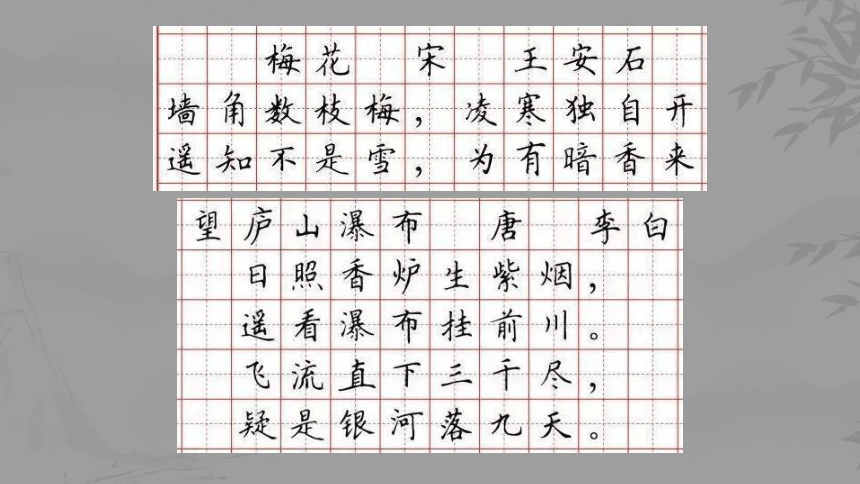 梅花 宋 王安石
墙角数枝梅，凌寒独自开
遥知不是雪，为有暗香来
望庐山瀑布 唐 李白
日照香炉生紫烟，
遥看瀑布挂前川。
飞流直下三千尽，
疑是银河落九天。